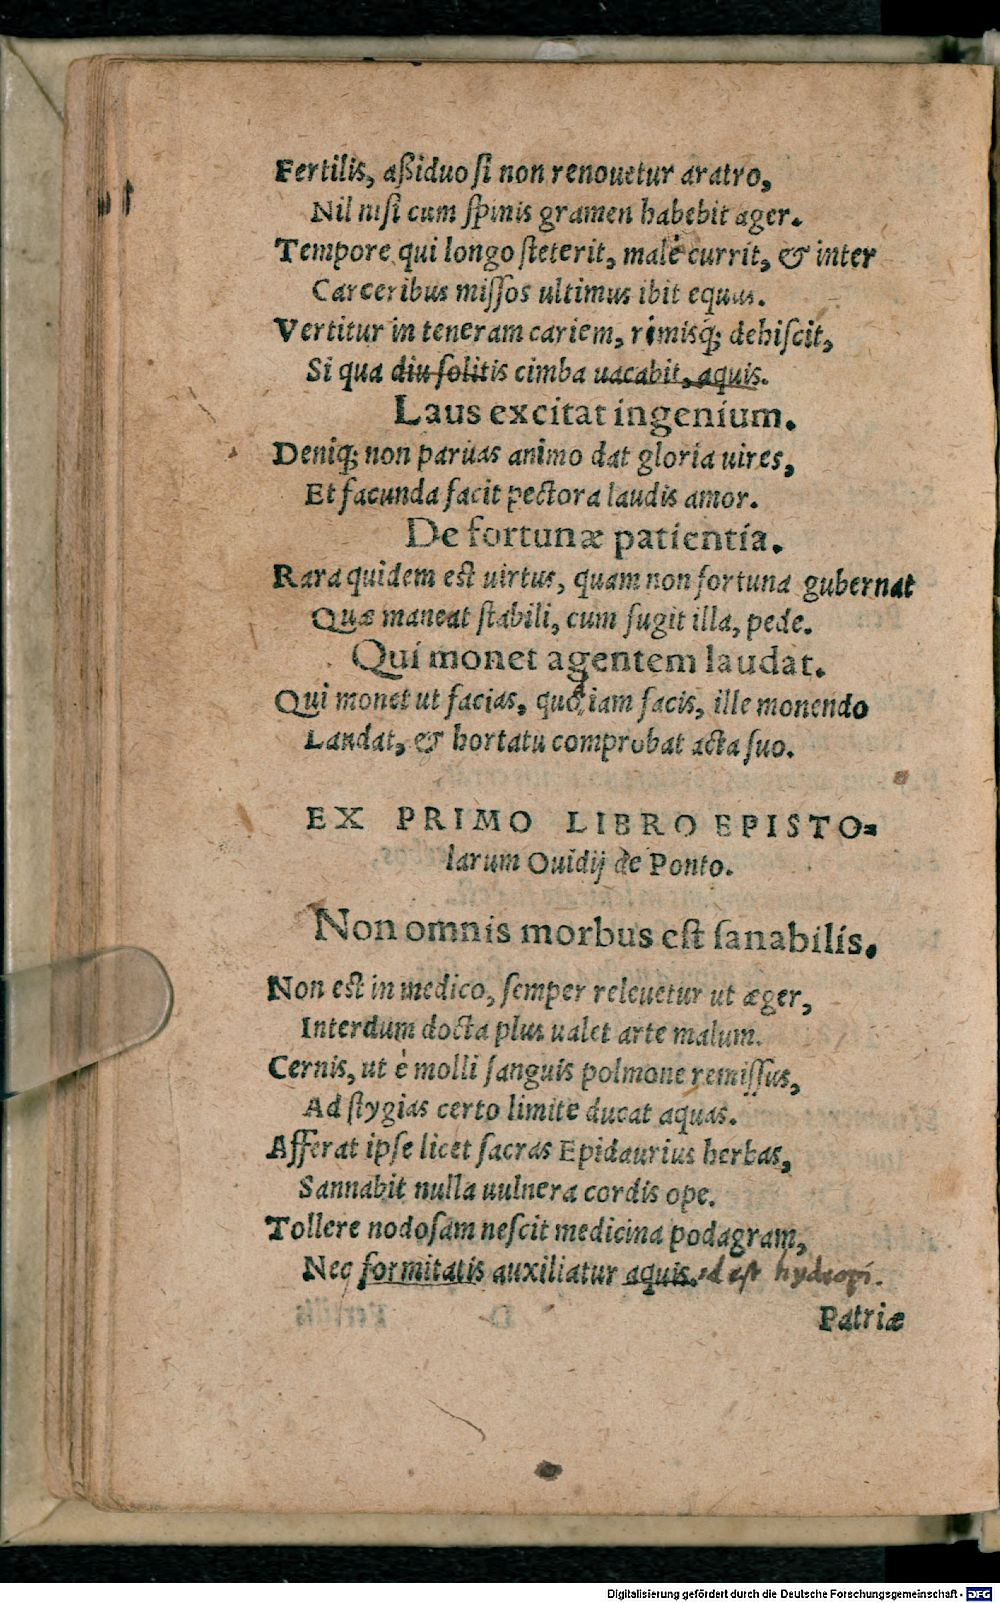 Fertilis, aßiduo ſi non renouetur aratro,
Nil niſi cum ſpinis gramen habebit ager.
Tempore qui longo ſteterit, malè currit, & inter
Carceribus miſſos ultimus ibit equus.
Vertitur in teneram cariem, rimisq́; dehiſcit,
Si qua diu ſolitis cimba uacabit, aquis.
Laus excitat ingenium.
Deniq; non paruas animo dat gloria uires,
Et facunda facit pectora laudis amor.
De fortunæ patientia.
Rara quidem est uirtus, quam non fortuna gubernat
Quæ maneat ſtabili, cum fugit illa, pede.
Qui monet agentem laudat.
Qui monet ut facias, quod iam facis, ille monendo
Laudat, & hortatu comprobat acta ſuo.
EX PRIMO LIBRO EPISTO=
larum Ouidij de Ponto.
Non omnis morbus eſt ſanabilis.
Non est in medico, ſemper releuetur ut æger,
Interdum docta plus ualet arte malum.
Cernis, ut è molli ſanguis polmone remiſſus,
Ad ſtygias certo limite ducat aquas.
Afferat ipſe licet ſacras Epidaurius herbas,
Sannabit nulla uulnera cordis ope.
Tollere nodoſam neſcit medicina podagram,
Nec formitatis auxiliatur aquis. id est hydropi.
Patriæ
Digitalisierung gefördert durch die Deutsche Forschungsgemeinschaft - DFG